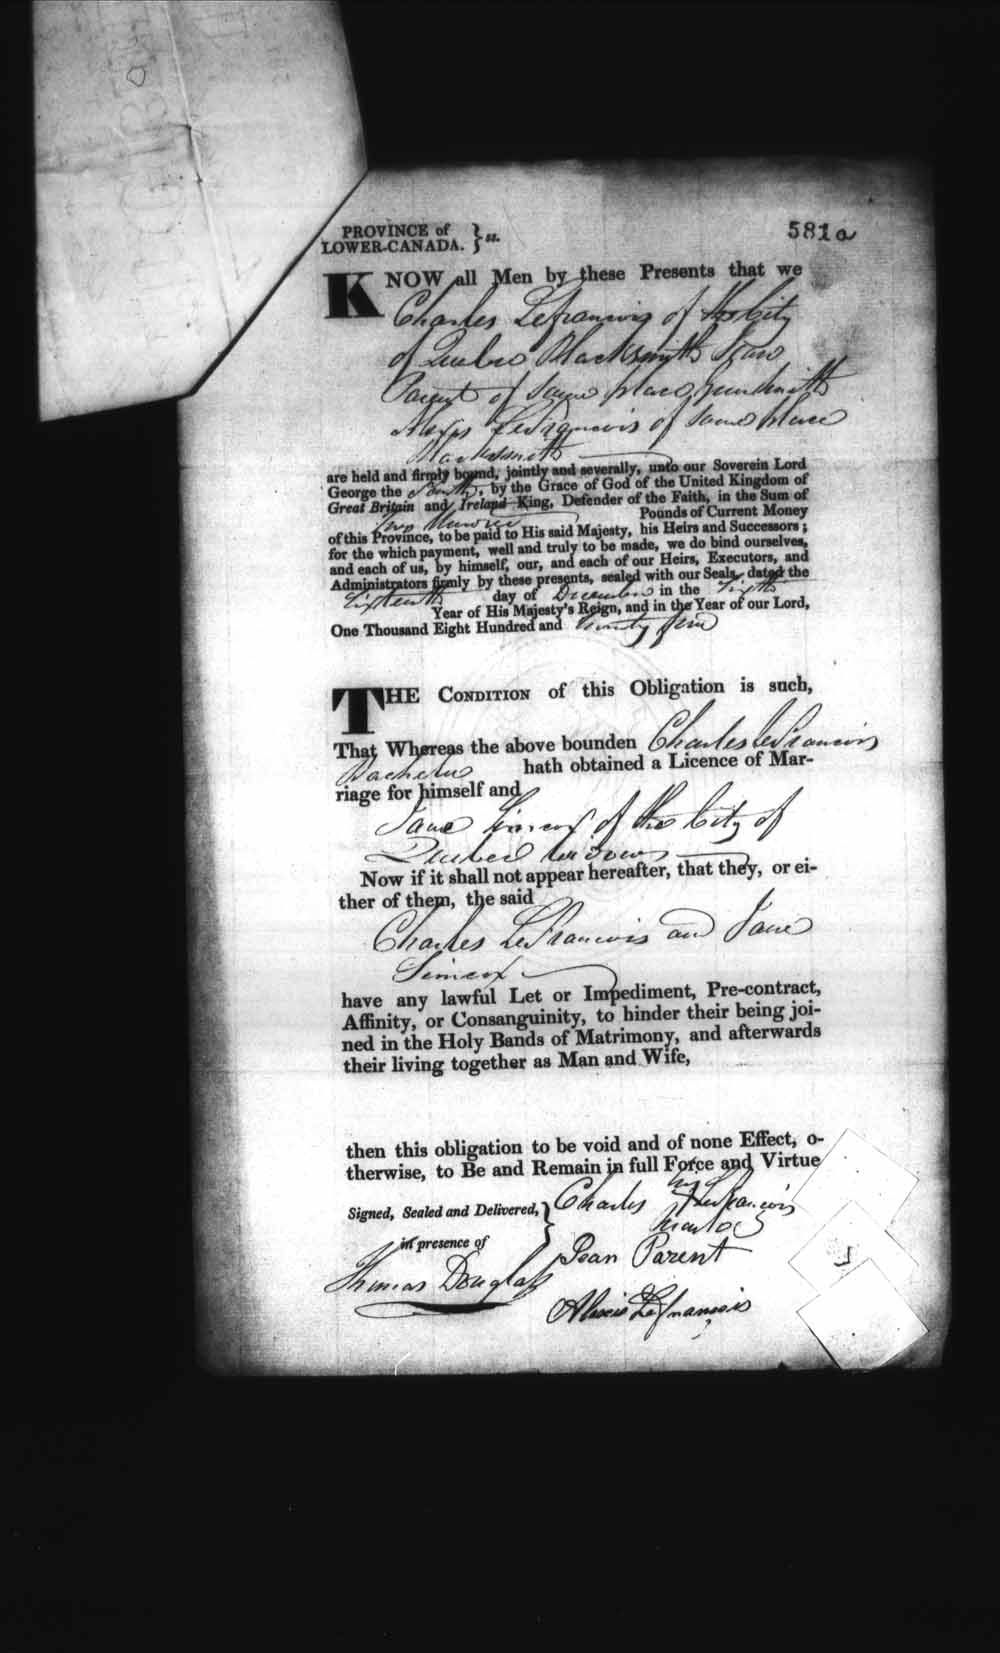 581a
PROVINCE of
LOWER-CANADA. } ss.
KNOW all Men by these Presents that we
Charles Lefrancois of the City
of Quebec Blacksmith Jean
Parent of same place Gunsmith
Alexis LeFrancois of same place
Blacksmith
are held and firmly bound, jointly and severally, unto our Soverein Lord
George the Fourth, by the Grace of God of the United Kingdom of
Great Britain and Ireland King, Defender of the Faith, in the Sum of
Two Hundred Pounds of Current Money
of this Province, to be paid to His said Majesty, his Heirs and Successors;
for the which payment, well and truly to be made, we do bind ourselves,
and each of us, by himself, our, and each of our Heirs, Executors, and
Administrators firmly by these presents, sealed with our Seals, dated the
Sixteenth day of December in the
Year of His Majesty's Reign, and in the Year of our Lord,
One Thousand Eight Hundred and twenty
THE CONDITION of this Obligation is such,
That Whereas the above bounden Charles LeFrancois
Bachelor hath obtained a Licence of Mar-
riage for himself and
Jane Simcox of the City of
Quebec Widow
Now if it shall not appear hereafter, that they, or ei-
ther of them, the said
Charles LeFrancois and Jane
Simcox
have any lawful Let or Impediment, Pre-contract,
Affinity, or Consanguinity, to hinder their being joi-
ned in the Holy Bands of Matrimony, and afterwards
their living together as Man and Wife,
then this obligation to be void and of none Effect, o-
therwise, to Be and Remain in full Force and Virtue
his
Signed, Sealed and Delivered, } Charles + Lefrancois
mark
in presence of
Jean Parent
Thomas Douglass
Alexis Lefrancois